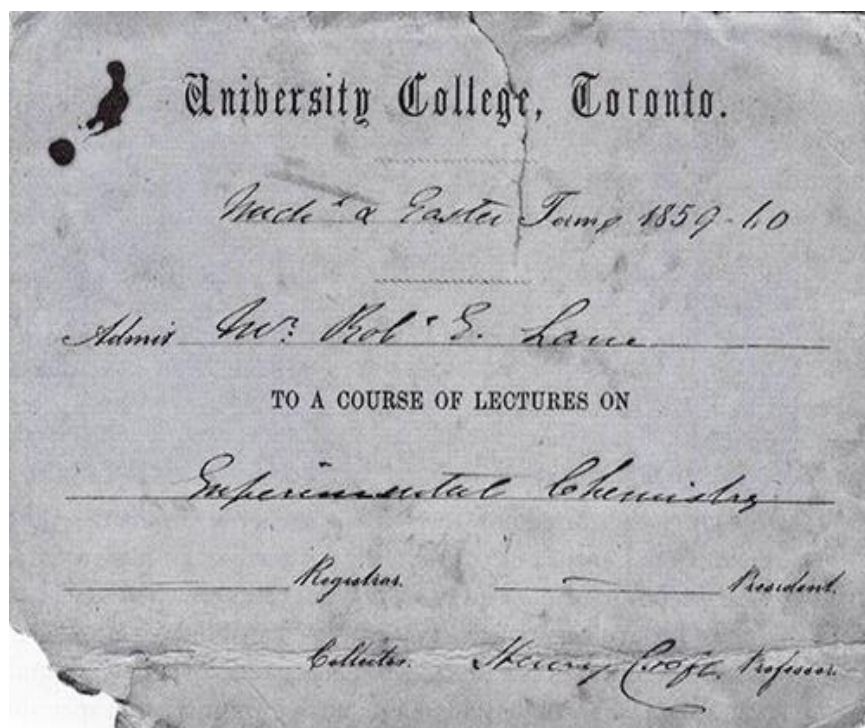 University College, Toronto.
Mich.s & Easter Terms 1859-60
Admit Mr. Robt. E. Lane
TO A COURSE OF LECTURES ON
Experimental Chemistry
Registrar. President.
Collector. Henry Croft, Professor.